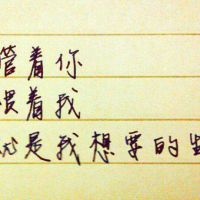 管着你
喂着我
就是我想要的